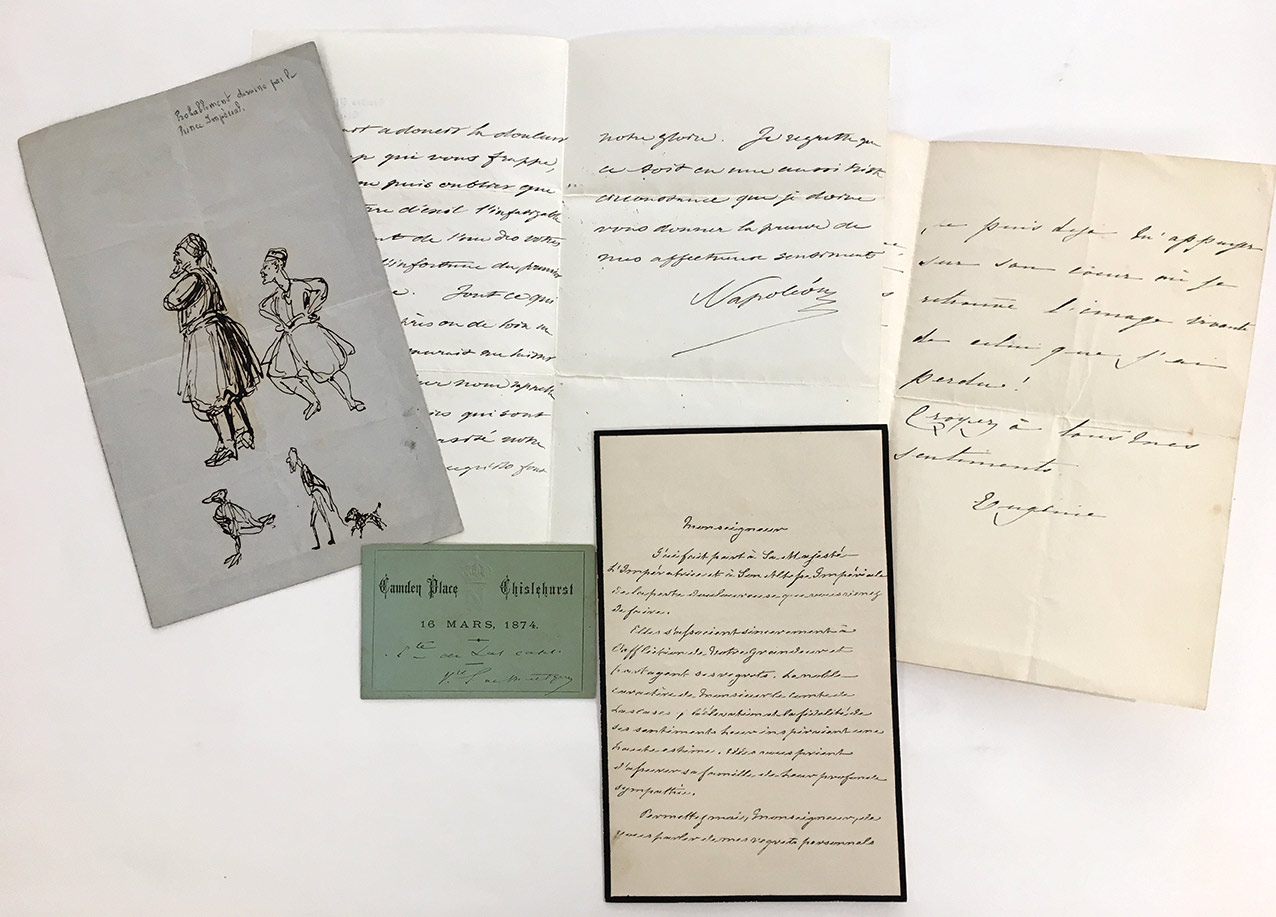 Probablement dessiné par le
Prince Impérial.
adoucir la douleur
qui vous frappe,
puis oublier que
d'exil l'infatigable
de l'un des votres
l'infortune du premier
Tout ce qui
de loin
nous rappelle
qui sont
notre
notre gloire. Je regrette que
ce soit en une aussi triste
circonstance que je doive
vous donner la preuve de
mes affectueux sentiments
Napoléon
je puis deja m'appuyer
sur son coeur où je
retrouve l'image vivante
de celui que j'ai
perdu!
Croyez à tous mes
sentiments
Eugénie
Camden Place Chislehurst
16 MARS, 1874.
Cte de Las Cases
Monseigneur
J'ai fait part à Sa Majesté
L'Impératrice et à Son Altesse Impériale
de la perte douloureuse que vous venez
de faire.
Elles s'associent sincerement à
l'affliction de Votre Grandeur et
partagent ses regrets. La noble
caractère de Monsieur le Comte de
Lascases, l'élévation et la fidélité de
ses sentiments leur inspiraient une
haute estime. Elles vous prient
d'assurer sa famille de leur profonde
sympathie.
Permettez moi, Monseigneur, de
vous parler de mes regrets personnels